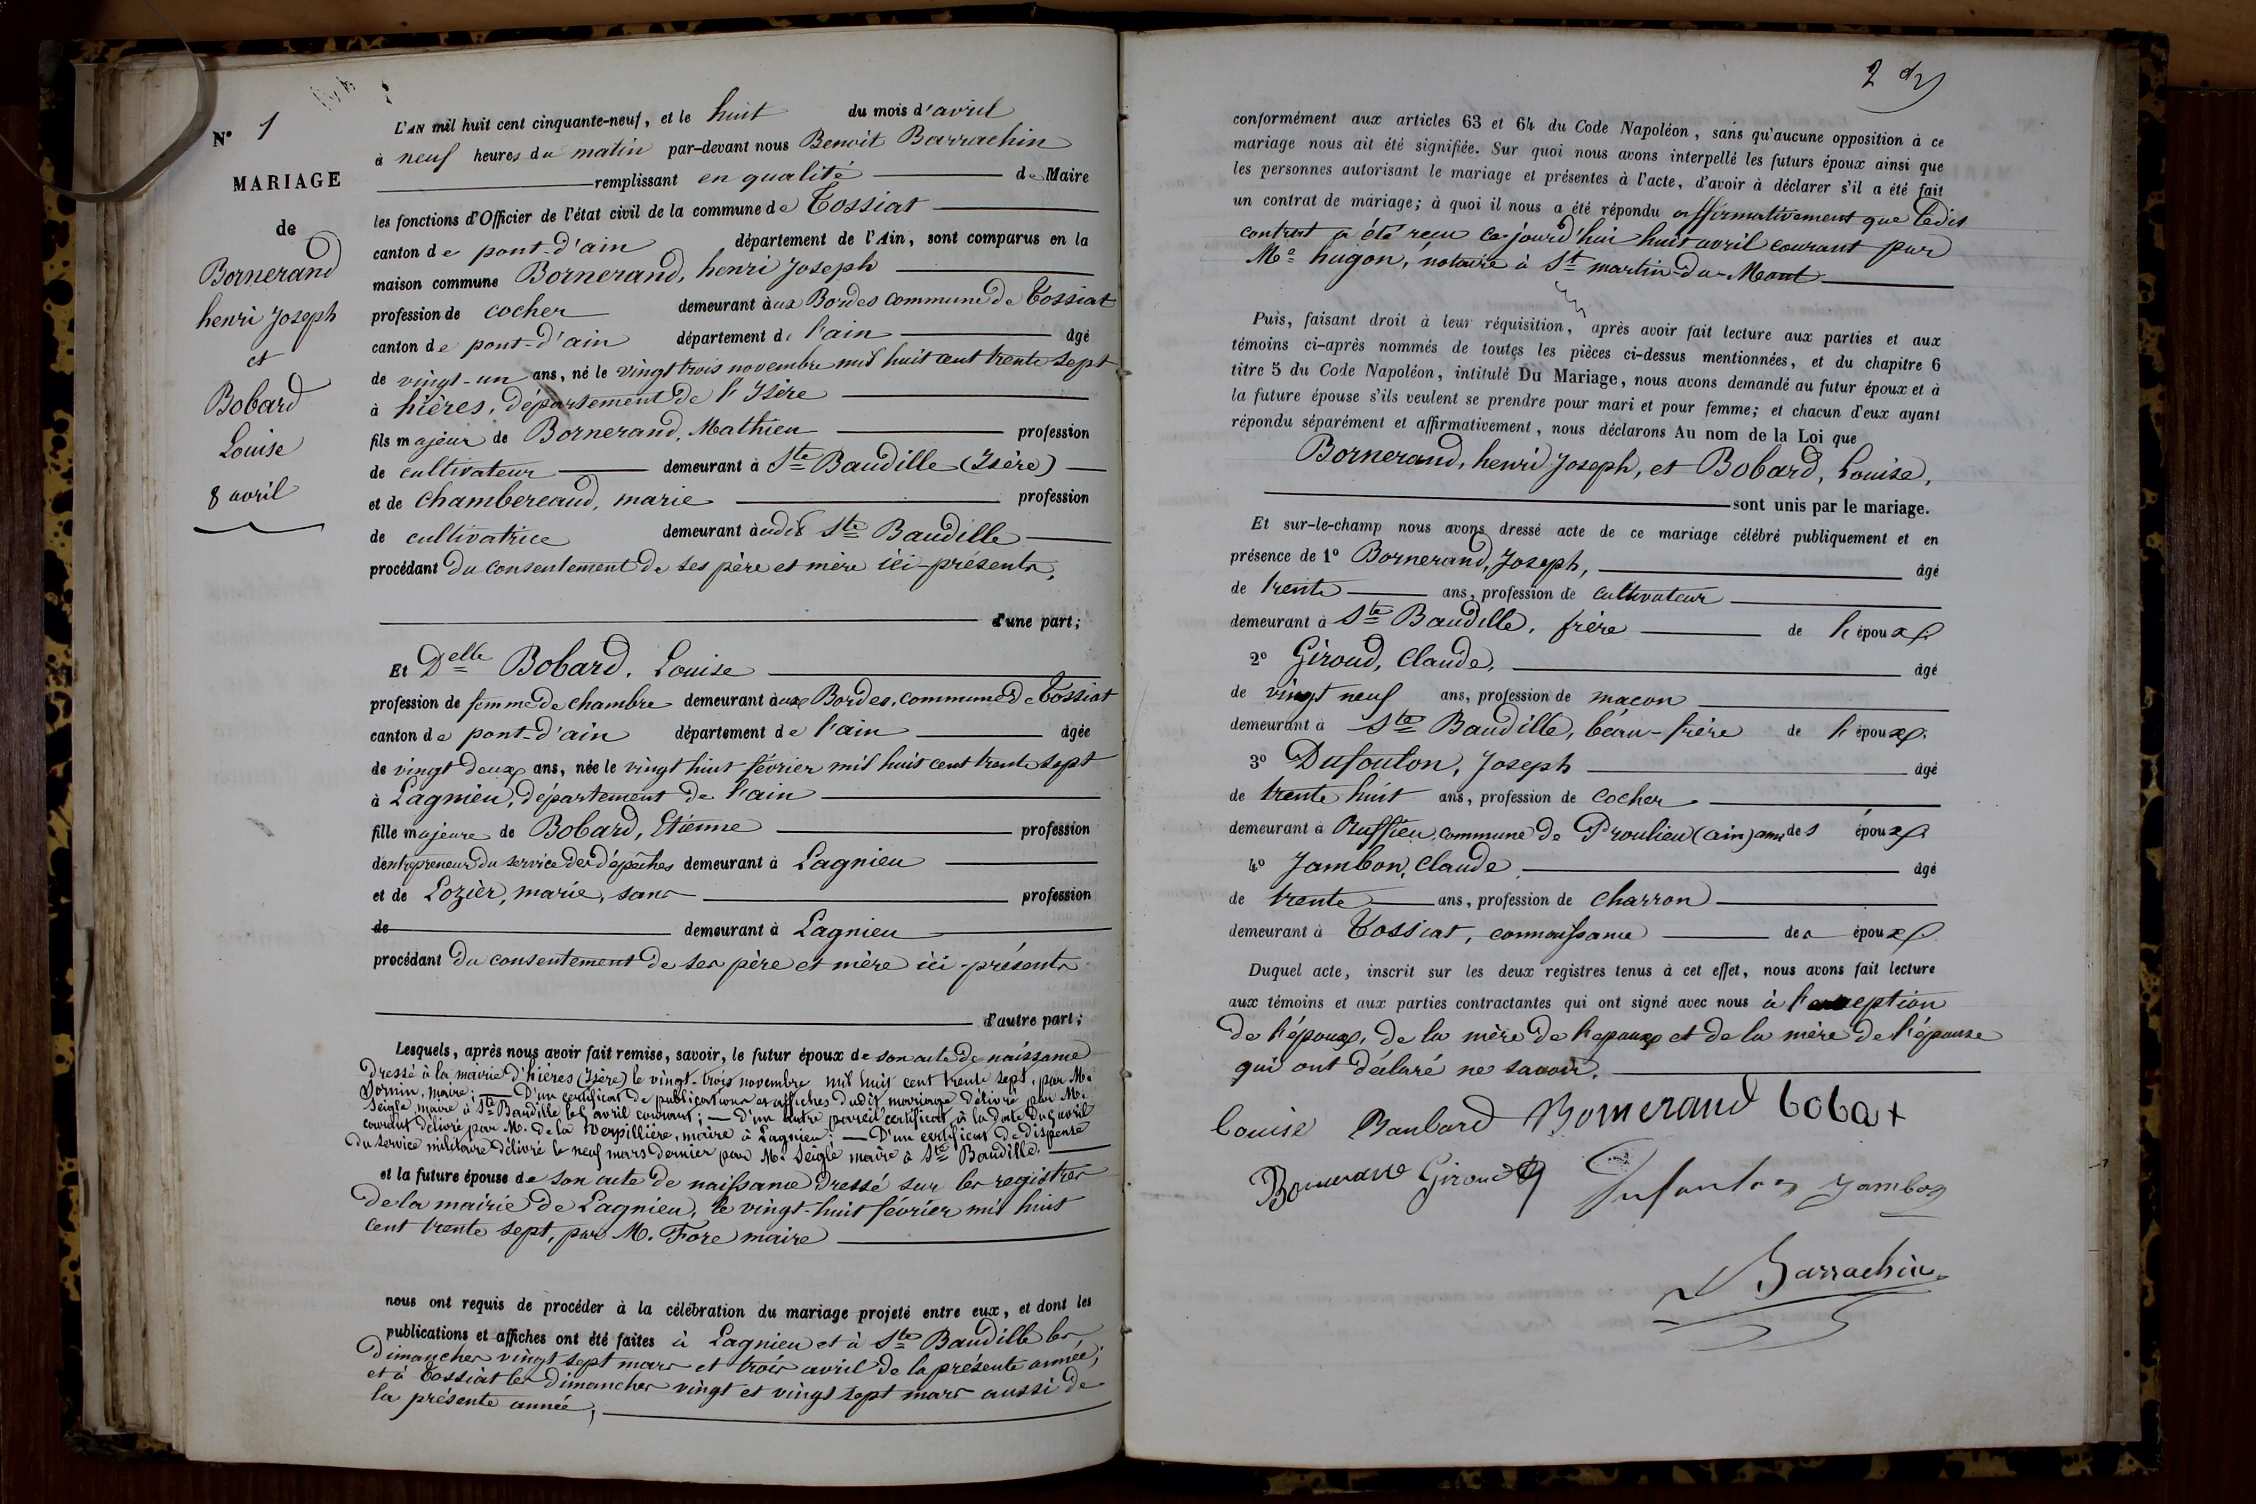 N° 1
MARIAGE
de
Bornerand
henri Joseph
et
Bobard
Louise
8 avril
L'AN mil huit cent cinquante-neuf, et le huit du mois d'avril
à neuf heures du matin par-devant nous Benoit Barrachin
remplissant en qualité de Maire
les fonctions d'Officier de l'état civil de la commune de Tossiat
canton de pont-d'ain département de l'Ain, sont comparus en la
maison commune Bornerand, henri Joseph
profession de cocher demeurant aux Bordes commune de Tossiat
canton de pont-d'ain département de l'ain âgé
de vingt-un ans, né le vingt trois novembre mil huit cent trente sept
à hières, département de l'Isère
fils majeur de Bornerand, Mathieu profession
de cultivateur demeurant à Ste Baudille (Isère)
et de Chambereaud, marie profession
de cultivatrice demeurant audit Ste Baudille
procédant du consentement de ses père et mère ici-présents,
d'une part;
Et Delle Bobard, Louise
profession de femme de chambre demeurant aux Bordes, commune de Tossiat
canton de pont-d'ain département de l'ain âgée
de vingt deux ans, née le vingt huit février mil huit cent trente sept
à Lagnieu, département de l'ain
fille majeure de Bobard, Etienne profession
d'entrepreneur du service des dépêches demeurant à Lagnieu
et de Lozier, marie, sans profession
de demeurant à Lagnieu
procédant du consentement de ses père et mère ici-présents
d'autre part;
Lesquels, après nous avoir fait remise, savoir, le futur époux de son acte de naissance
dressé à la mairie d'hières (Isère) le vingt-trois novembre mil huit cent trente sept, par M.
maire; D'un certificat de publications et affiches dudit mariage délivré par M.
Seigle, maire à Ste Baudille le avril courant; D'un autre pareil certificat à la date du avril
courant délivré par M. de la Verpillière, maire à Lagnieu; D'un certificat de dispense
du service militaire délivré le neuf mars dernier par M. Seigle maire à Ste Baudille.
et la future épouse de son acte de naissance dressé sur les registres
de la mairie de Lagnieu, le vingt-huit février mil huit
cent trente sept, par M. Fore maire
nous ont requis de procéder à la célébration du mariage projeté entre eux, et dont les
publications et affiches ont été faites à Lagnieu et à Ste Baudille les
dimanches vingt sept mars et trois avril de la présente année;
et à Tossiat les dimanches vingt et vingt sept mars aussi de
la présente année,
2
conformément aux articles 63 et 64 du Code Napoléon, sans qu'aucune opposition à ce
mariage nous ait été signifiée. Sur quoi nous avons interpellé les futurs époux ainsi que
les personnes autorisant le mariage et présentes à l'acte, d'avoir à déclarer s'il a été fait
un contrat de mariage; à quoi il nous a été répondu affirmativement que ledit
contrat a été reçu ce-jourd'hui huit avril courant par
Me hugon, notaire à St martin-du-Mont
Puis, faisant droit à leur réquisition, après avoir fait lecture aux parties et aux
témoins ci-après nommés de toutes les pièces ci-dessus mentionnées, et du chapitre 6
titre 5 du Code Napoléon, intitulé Du Mariage, nous avons demandé au futur époux et à
la future épouse s'ils veulent se prendre pour mari et pour femme; et chacun d'eux ayant
répondu séparément et affirmativement, nous déclarons Au nom de la Loi que
Bornerand, henri Joseph, et Bobard, Louise,
sont unis par le mariage.
Et sur-le-champ nous avons dressé acte de ce mariage célébré publiquement et en
présence de 1° Bornerand, Joseph, âgé
de trente ans, profession de cultivateur
demeurant à Ste Baudille, frère de l'époux.
2° Giroud, Claude, âgé
de vingt neuf ans, profession de maçon
demeurant à Ste Baudille, beau-frère de l'époux.
3° Dufoulon, Joseph âgé
de trente huit ans, profession de cocher
demeurant à Ruffieu commune de Proulieu (ain) ami des époux
4° Jambon, Claude âgé
de trente ans, profession de charron
demeurant à Tossiat, connaissance des époux
Duquel acte, inscrit sur les deux registres tenus à cet effet, nous avons fait lecture
aux témoins et aux parties contractantes qui ont signé avec nous à l'exception
de l'époux, de la mère de l'époux et de la mère de l'épouse
qui ont déclaré ne savoir.
Louise Baubard Bornerand boba
Bornerand Giroud Dufoulon Jambon
Barrachin